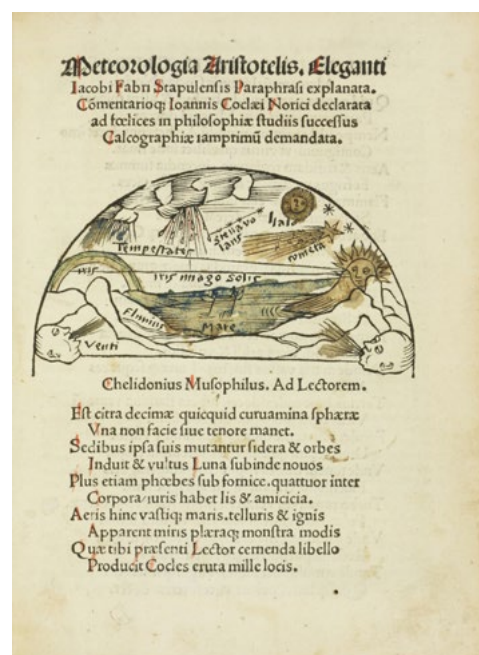 Meteorologia Aristotelis. Eleganti
Iacobi Fabri Stapulensis Paraphrasi explanata.
Cōmentarioq; Ioannis Coclæi Norici declarata
ad fœlices in philosophiæ studiis successus
Calcographiæ iamprimū demandata.
Tempestates
Stella volans
cometa
iris
iris imago solis
Fluuius
Mare
Venti
Chelidonius Musophilus. Ad Lectorem.
Est citra decimæ quicquid curuamina sphæræ
Vna non facie siue tenore manet.
Sedibus ipsa suis mutantur sidera & orbes
Induit & vultus Luna subinde nouos
Plus etiam phœbes sub fornice. quattuor inter
Corpora iuris habet lis & amicicia.
Aeris hinc vastiq; maris. telluris & ignis
Apparent miris plæraq; monstra modis
Quæ tibi præsenti Lector cernenda libello
Producit Cocles eruta mille locis.